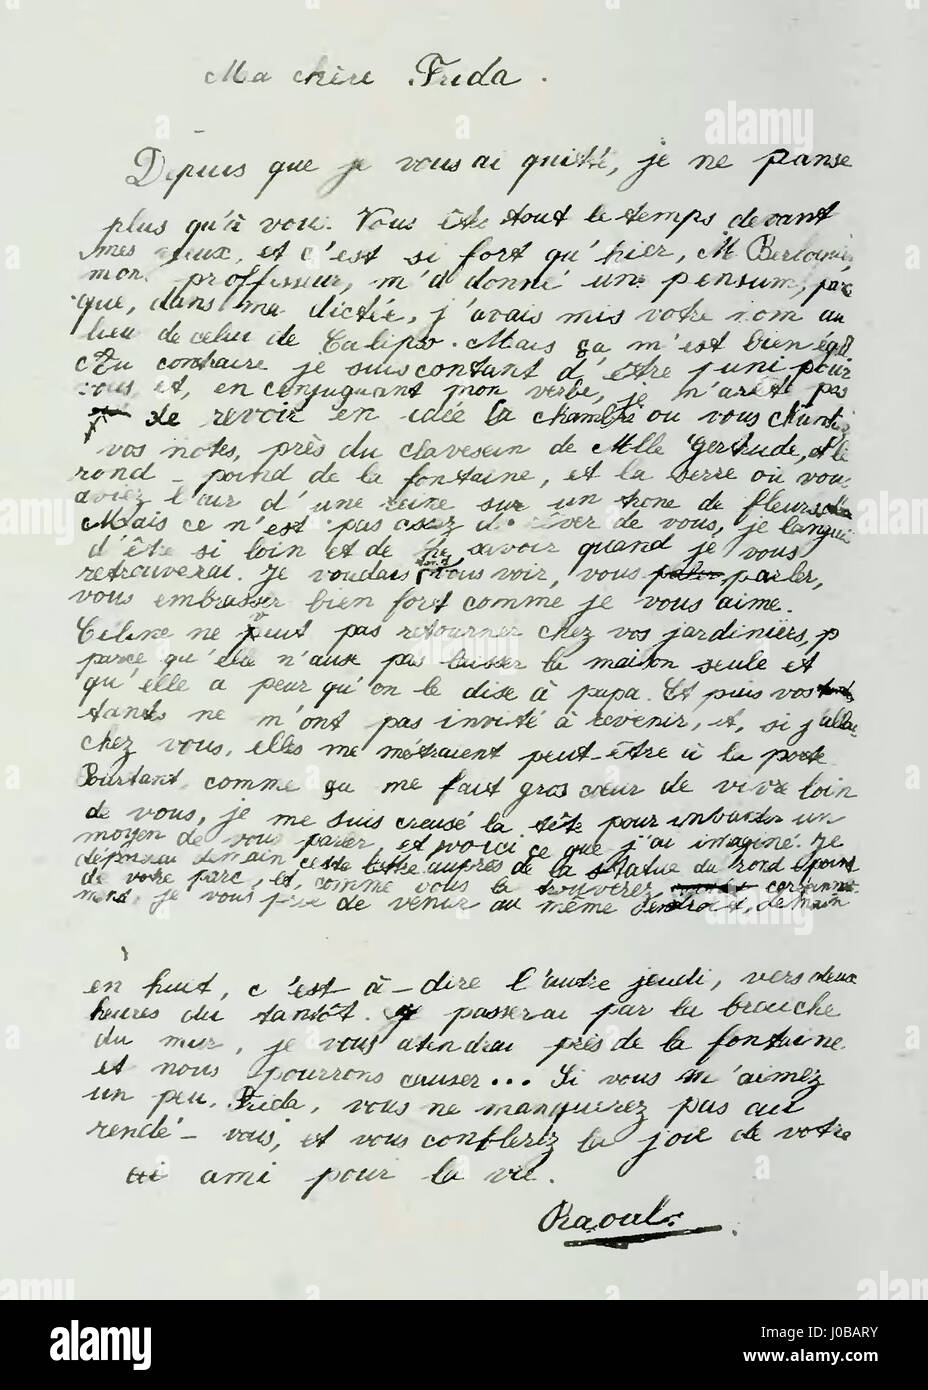 Ma chère Frida.
Depuis que je vous ai quitté, je ne panse
plus qu'à vou. Vous ête tout le temps devant
mes yeux, et c'est si fort qu'hier, M Bertoni,
mon proffesseur, m'a donné un pensum, parc
que, dans ma dictée, j'avais mis votre nom au
lieu de celui de Calipso. Mais ça m'est bien égal
Au contraire je suis contant d'être puni pour
vous et, en conjuguant mon verbe, je n'arête pas
de revoir en idée la chambre ou vous chanti
vos notes, près du clavesein de Mlle Gertrude, et le
rond-poind de la fontaine, et la serre où vou
aviez l'air d'une reine sur un trone de fleurs
Mais ce n'est pas assez de rêver de vous, je languis
d'être si loin et de ne savoir quand je vous
retrouverai. Je voudais vous voir, vous parler,
vous embrasser bien fort comme je vous aime.
Céline ne peut pas retourner chez vos jardiniers, p
parce qu'elle n'ause pas laisser la maison seule et
qu'elle a peur qu'on le dise à papa. Et puis vos
tantes ne m'ont pas invité à revenir, et, si j'allai
chez vous, elles me métraient peut-être à la porte
Pourtant, comme ça me fait gros cœur de vivre loin
de vous, je me suis creusé la tête pour inventer un
moyen de vous parler, et voici ce que j'ai imaginé. Je
déposerai demain cette lettre auprès de la statue du rond-point
de votre parc, et, comme vous la trouverez certaine-
ment, je vous prie de venir au même endroit, demain
en huit, c'est-à-dire l'autre jeudi, vers deux
heures du tantôt. Je passerai par la brouche
du mur, je vous atendrai près de la fontaine
et nous pourrons causer... Si vous m'aimez
un peu, Frida, vous ne manquerez pas au
rendé-vous, et vous conblerez la joie de votre
ami pour la vie.
Raoul.
alamy
Image ID: J0BARY
www.alamy.com